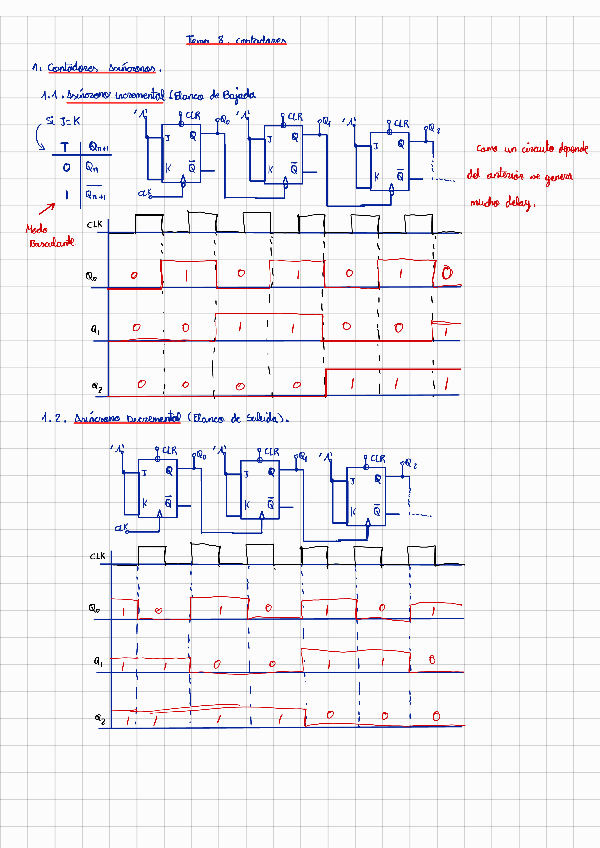 Tema 8. Contadores
1. Contadores Asíncronos.
1.1. Asíncrono Incremental (Flanco de Bajada
Si J=K
T Qn+1
0 Qn
1 Qn+1
Modo
Basculante
'1' CLR Q0 '1' CLR Q1 '1' CLR Q2
J Q J Q J Q
K Q K Q K Q
CLK
Como un circuito depende
del anterior se genera
mucho delay.
CLK
Q0 0 1 0 1 0 1 0
Q1 0 0 1 1 0 0 1
Q2 0 0 0 0 1 1 1
1.2. Asíncrono Decremental (Flanco de Subida).
'1' CLR Q0 '1' CLR Q1 '1' CLR Q2
J Q J Q J Q
K Q K Q K Q
CLK
CLK
Q0 1 0 1 0 1 0 1
Q1 1 1 0 0 1 1 0
Q2 1 1 1 1 0 0 0